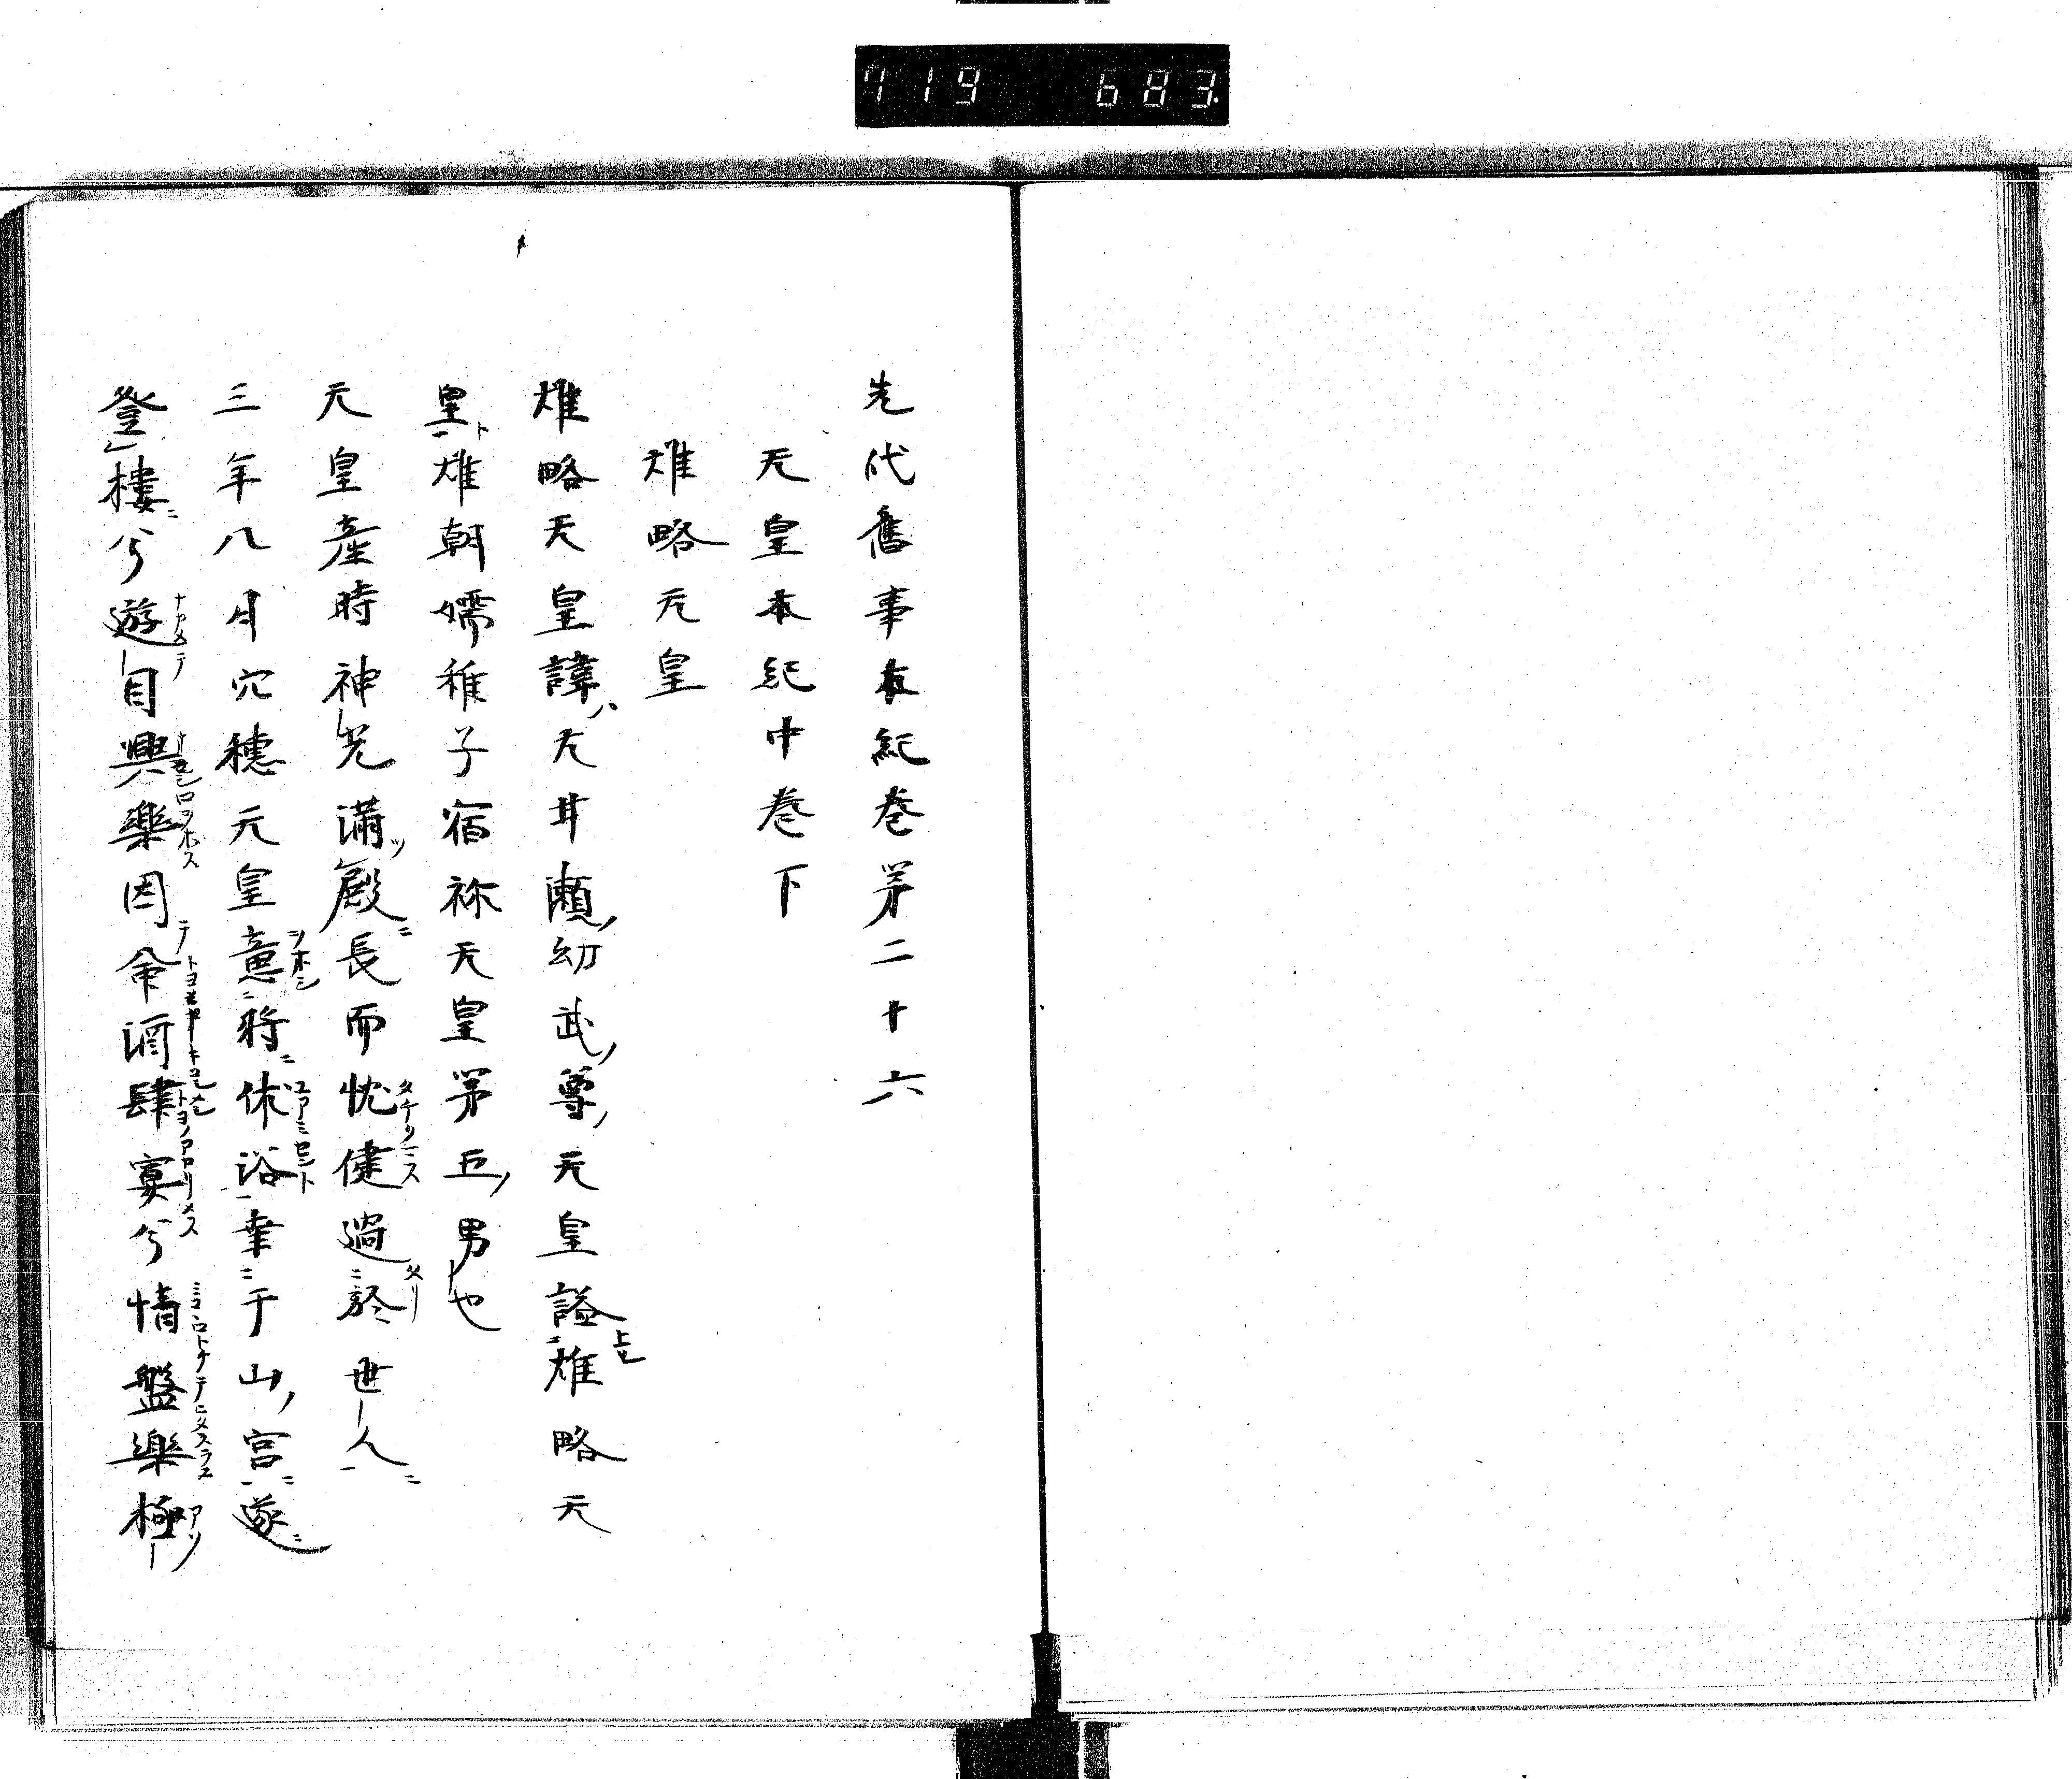 719 683.
先代舊事本紀巻第二十六
天皇本紀中巻下
雄略天皇
雄略天皇諱大耳瀬幼武尊天皇謚雄略天
皇雄朝嬬稚子宿祢天皇第五男也
天皇産時神光満殿長而忱健過於世人
三年八月穴穂天皇意将休浴幸于山宮遂
登樓兮遊目興樂因命酒肆宴兮情盤樂極